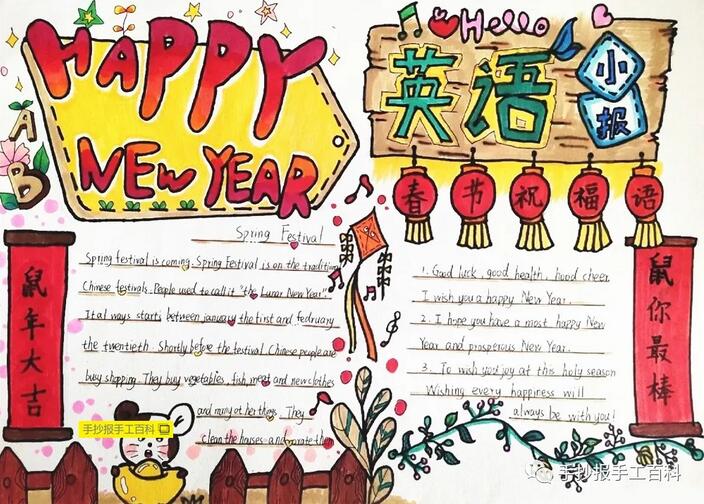 HAPPY
NEW YEAR
A
B
Hello
英语
小报
春节祝福语
鼠年大吉
Spring Festival
Spring festival is coming. Spring Festival is on the tradition
Chinese festivals. People used to call it "the Lunar New Year".
It al ways starts between january the first and februdry
the twentieth. Shortly before the festival Chinese people are
busy shopping. They buy vegetables, fish, meat and new clothes
and many other things. They
clean the houses and
them
1. Good luck, good health, hood cheer
I wish you a happy New Year.
2. I hope you have a most happy New
Year and prosperous New Year.
3. To wish you joy at this holy season
Wishing every happiness will
always be with you!
鼠你最棒
手抄报手工百科
手抄报手工百科